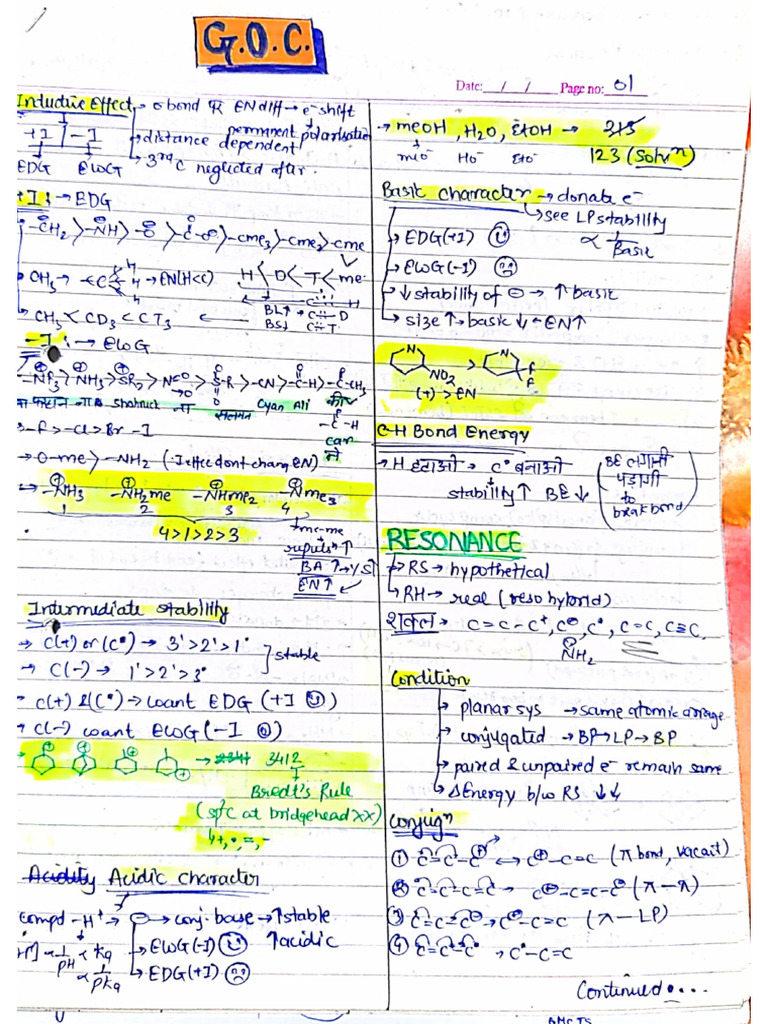 G.O.C.
Date: / / Page no: 01
Inductive Effect → σ bond पर EN diff → e⁻ shift
permanent polarisation
+I | -I
→ distance dependent
EDG EWG
→ 3rd C neglected after.
+I: → EDG
-CH₂ > -NH > -O > -C-O > -cme₃ > -cme₂ > -cme
CH₃ → -C → EN(H<C) H < D < T < me
H
H
H
C-H
BL↑ C-D
BS↓ C-T
→ CH₃ < CD₃ < CT₃
-I: → EWG
Shahruck ना सलमान Cyan Ali की
-C-H
can
ने
→ -F > -Cl > Br - I
→ O-me > -NH₂ (-I effec dont chang EN)
→ -NH₃ -NH₂me -NHme₂ -Nme₃
1 2 3 4
4>1>2>3
repulsn ↑
BA ↑ → %S↑
EN↑
Intermediate stability
→ C(+) or (C•) → 3°>2°>1°
stable
→ C(-) → 1°>2°>3°
→ C(+) & (C•) → want EDG (+I ☺)
→ C(-) want EWG (-I ☺)
→ 3412
Bredt's Rule
(sp² C at bridgehead XX)
↳ +, •, =, -
Acidity Acidic character
compd -H⁺ → ⊖ → conj. base → ↑ stable
→ EWG(-I) ☺ ↑ acidic
→ EDG(+I) ☹
∝ 1/pH ∝ Ka
∝ 1/pKa
→ meOH, H₂O, EtOH → 315
meO⁻ HO⁻ EtO⁻ 123 (Solvⁿ)
Basic character → donate e⁻
→ see LP stability
∝ 1/Basic
→ EDG(+I) ☺
→ EWG(-I) ☹
→ ↓ stability of ⊖ → ↑ basic
→ size ↑ → basic ↓ ← EN↑
N N
NO₂ > F
F
(+) > EN
C-H Bond Energy
→ H हटाओ → C• बनाओ
stability ↑ BE ↓
BE लगानी
पड़ागी
to
break bond
RESONANCE
→ RS → hypothetical
→ RH → real (reso hybrid)
शक्ल → C=C-C⁺, C⊖, C•, C=C, C≡C.
NH₂
Condition
→ planar sys → same atomic arrange
→ conjugated → BP → LP → BP
→ paired & unpaired e⁻ remain same
→ ΔEnergy b/w RS ↓↓
Conjugⁿ
① C=C-C⊕ ↔ C⊕-C=C (π bond, vacant)
② C=C-C=C → C⊕-C=C-C⊖ (π-π)
③ C=C-C⊖ → C⊖-C=C (π-LP)
④ C=C-C• → C•-C=C
Continued....